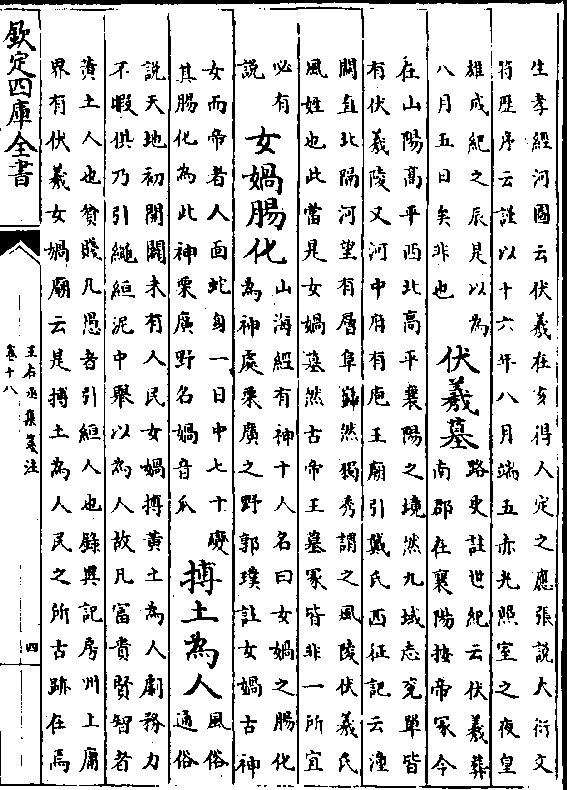 生孝經河圖云伏羲在亥得人定之應張說大衍文
符歷序云謹以十六年八月端五赤光照室之夜皇
雄成紀之辰是以為
八月五日矣非也
伏羲墓
路史註世紀云伏羲葬
南郡在襄陽按帝冢今
在山陽高平西北高平襄陽之境然九域志兖單皆
有伏羲陵又河中府有庖王廟引戴氏西征記云潼
關直北隔河望有層阜巋然獨秀謂之風陵伏羲氏
風姓也此當是女媧墓然古帝王墓冢皆非一所宜
必有
說
女媧腸化
山海經有神十人名曰女媧之腸化
為神處栗廣之野郭璞註女媧古神
女而帝者人面蛇身一日中七十變
其腸化為此神栗廣野名媧音瓜
摶土為人
風俗
通俗
說天地初開闢未有人民女媧摶黄土為人劇務力
不暇供乃引繩絙泥中舉以為人故凡富貴賢智者
黄土人也貧賤凡愚者引絙人也錄異記房州上庸
界有伏羲女媧廟云是摶土為人民之所古跡在焉
欽定四庫全書
王右丞集箋注
卷十八
四